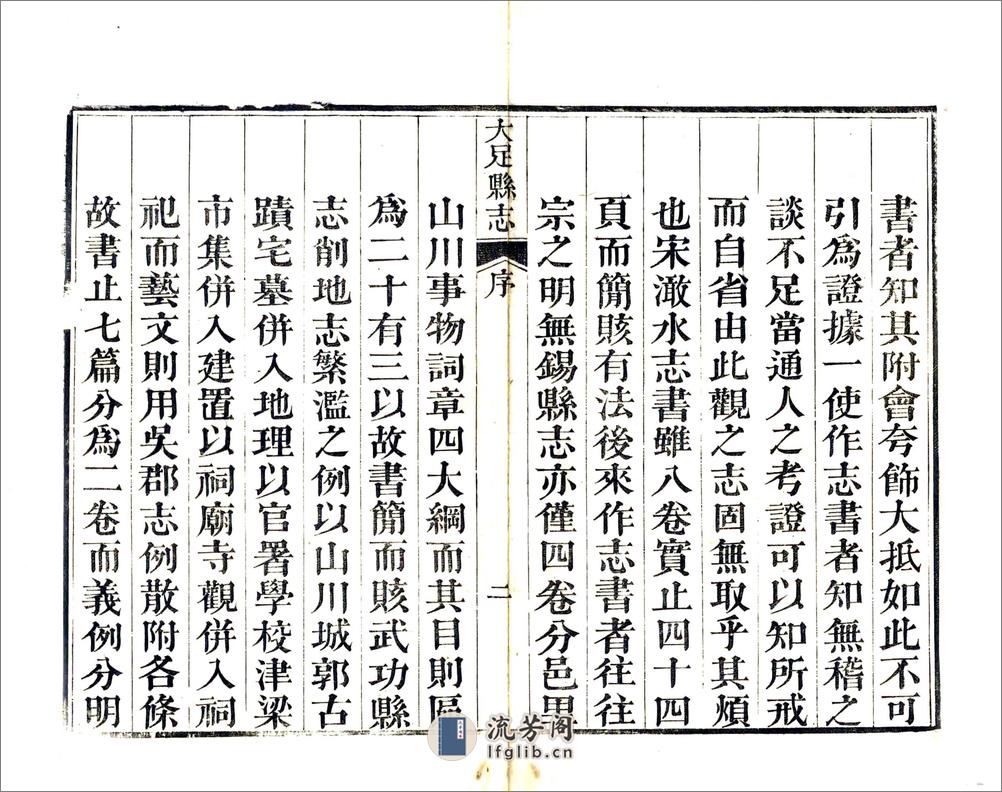 書者知其附會夸飾大抵如此不可
引爲證據一使作志書者知無稽之
談不足當通人之考證可以知所戒
而自省由此觀之志固無取乎其煩
也宋澉水志書雖八卷實止四十四
頁而簡賅有法後來作志書者往往
宗之明無錫縣志亦僅四卷分邑里
大足縣志
序
二
山川事物詞章四大綱而其目則區
爲二十有三以故書簡而賅武功縣
志削地志繁濫之例以山川城郭古
蹟宅墓併入地理以官署學校津梁
市集併入建置以祠廟寺觀併入祠
祀而藝文則用吳郡志例散附各條
故書止七篇分爲二卷而義例分明
流芳阁
lfglib.cn